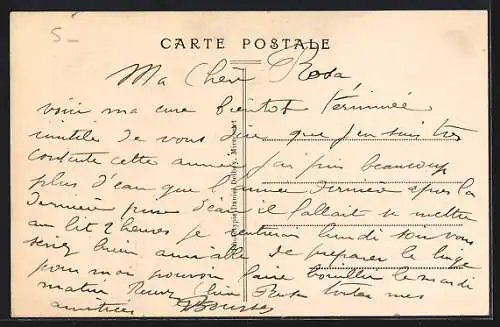 5
CARTE POSTALE
Ma Chère Rosa
voici ma cure bientôt terminée
inutile de vous dire que j'en suis très
contente cette année j'ai pris beaucoup
plus d'eau que l'année dernière après la
dernière prise d'eau il fallait se mettre
au lit 2 heures je rentrerai lundi soir vous
serez bien aimable de préparer le linge
pour moi pouvoir faire bouillir le mardi
matin Recevez chère Rosa toutes mes
amitiés
Daniel Delbey, Mirecourt